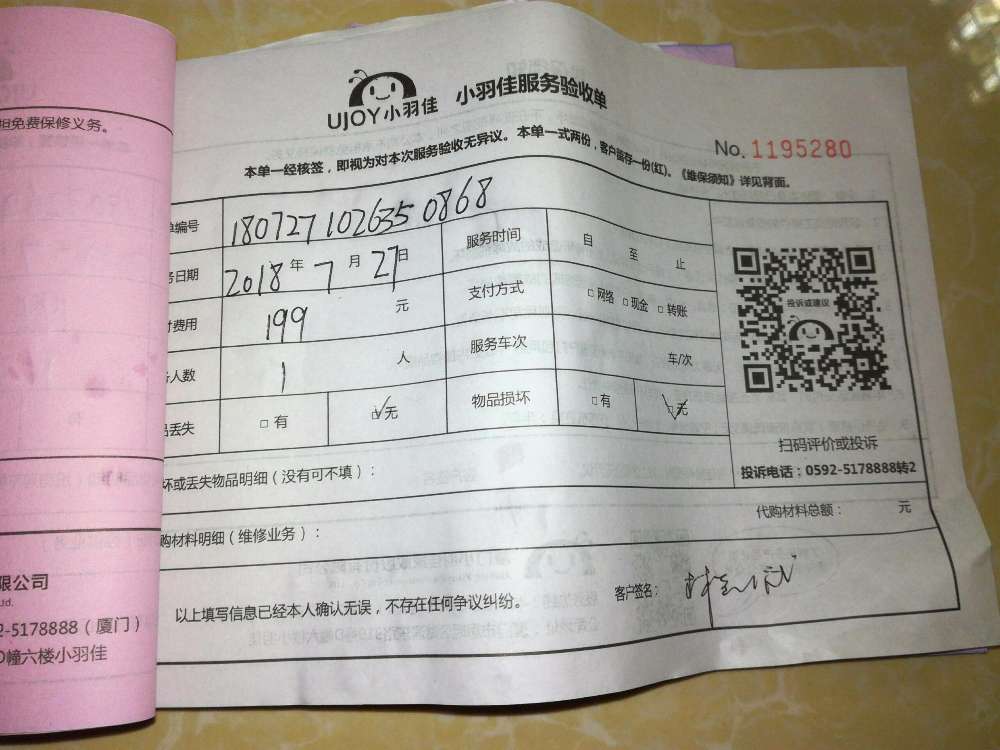 担免费保修义务。
限公司
Ltd.
2-5178888（厦门）
D幢六楼小羽佳
UJOY小羽佳 小羽佳服务验收单
No. 1195280
本单一经核签，即视为对本次服务验收无异议。本单一式两份，客户留存一份(红)。《维保须知》详见背面。
单编号 180727 102635 0868 服务时间 自 至 止
务日期 2018年7月27日 支付方式 □网络 □现金 □转账
付费用 199 元 服务车次 车/次
务人数 1 人
品丢失 □有 ☑无 物品损坏 □有 ☑无
投诉或建议
扫码评价或投诉
投诉电话：0592-5178888转2
坏或丢失物品明细（没有可不填）：
购材料明细（维修业务）： 代购材料总额： 元
以上填写信息已经本人确认无误，不存在任何争议纠纷。 客户签名：